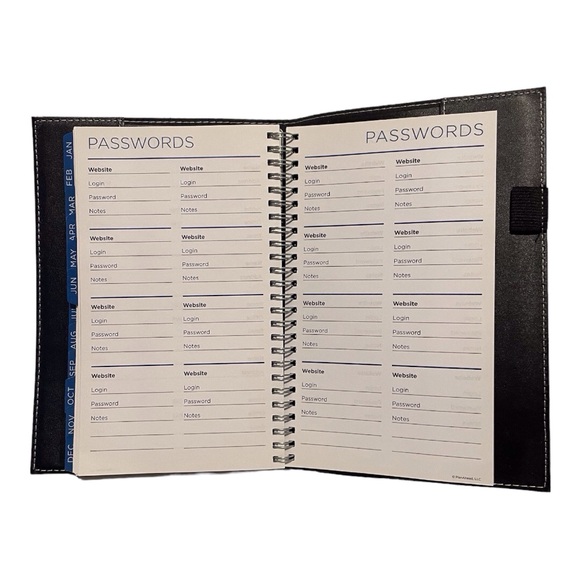 PASSWORDS
Website Website
Login Login
Password Password
Notes Notes
Website Website
Login Login
Password Password
Notes Notes
Website Website
Login Login
Password Password
Notes Notes
Website Website
Login Login
Password Password
Notes Notes
PASSWORDS
Website Website
Login Login
Password Password
Notes Notes
Website Website
Login Login
Password Password
Notes Notes
Website Website
Login Login
Password Password
Notes Notes
Website Website
Login Login
Password Password
Notes Notes
JAN
FEB
MAR
APR
MAY
JUN
JUL
AUG
SEP
OCT
NOV
DEC